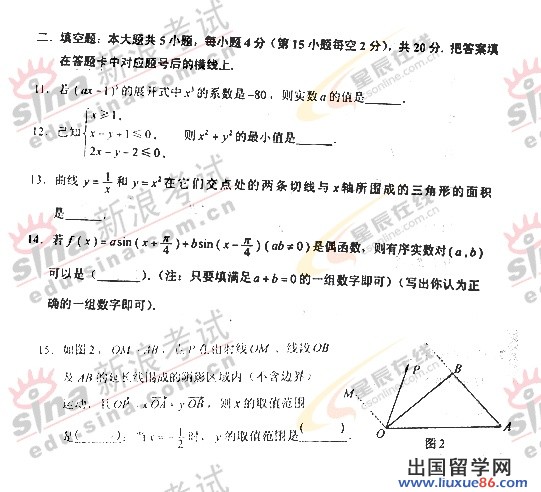 二．填空题：本大题共5小题，每小题4分（第15小题每空2分），共20分．把答案填
在答题卡中对应题号后的横线上．
11．若(ax-1)⁵的展开式中x³的系数是-80，则实数a的值是______．
12．已知{x≥1, x-y+1≤0, 2x-y-2≤0, 则x²+y²的最小值是______
13．曲线y=1/x和y=x²在它们交点处的两条切线与x轴所围成的三角形的面积
是______．
14．若f(x)=asin(x+π/4)+bsin(x-π/4)(ab≠0)是偶函数，则有序实数对(a,b)
可以是(______)．（注：只要填满足a+b=0的一组数字即可）（写出你认为正
确的一组数字即可）．
15．如图2，OM∥AB，点P在由射线OM、线段OB
及AB的延长线围成的阴影区域内（不含边界）
运动，且OP=xOA+yOB，则x的取值范围
是(______)；当x=-1/2时，y的取值范围是(______)
P
B
M
O
A
图2
sina 新浪考试
edu.sina.com.cn
星辰在线
csonline.com.cn
出国留学网
www.liuxue86.com